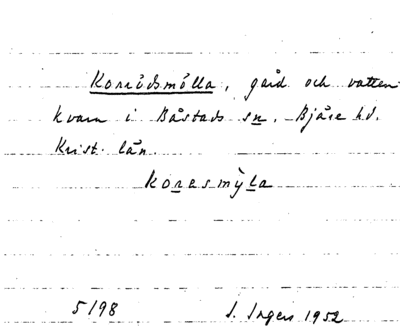 Korrödsmölla, gård och vatten
kvarn i Båstads sn. Bjäre hd.
Krist. län.
koresmỳla
5198 I. Ingers 1952